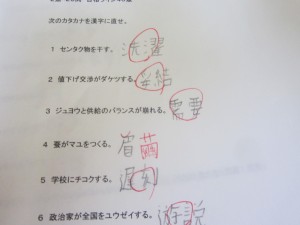 次のカタカナを漢字に直せ。
1 センタク物を干す。 洗濯
2 値下げ交渉がダケツする。 妥結
3 ジュヨウと供給のバランスが崩れる。 需要
4 蚕がマユをつくる。 眉 繭
5 学校にチコクする。 遅刻
6 政治家が全国をユウゼイする。 遊説